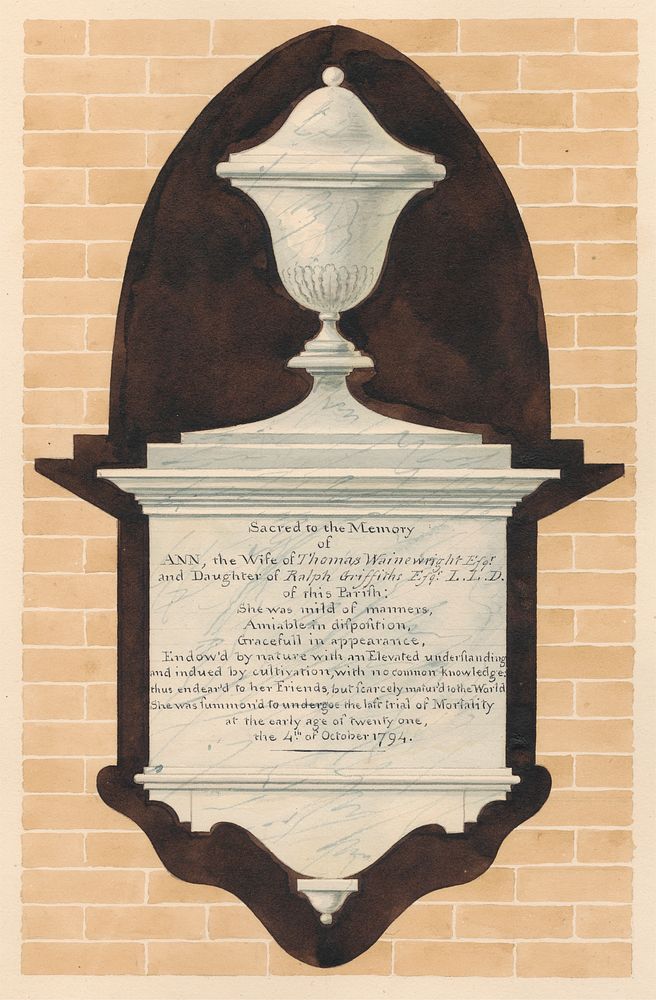 Sacred to the Memory
of
ANN, the Wife of Thomas Wainewright Esqr.
and Daughter of Ralph Griffiths Esqr. L.L.D.
of this Parish:
She was mild of manners,
Amiable in disposition,
Gracefull in appearance,
Endow'd by nature with an Elevated understanding
and indued by cultivation, with no common knowledge:
thus endear'd to her Friends, but scarcely matur'd to the World
She was summon'd to undergoe the last trial of Mortality
at the early age of twenty one,
the 4th of October 1794.